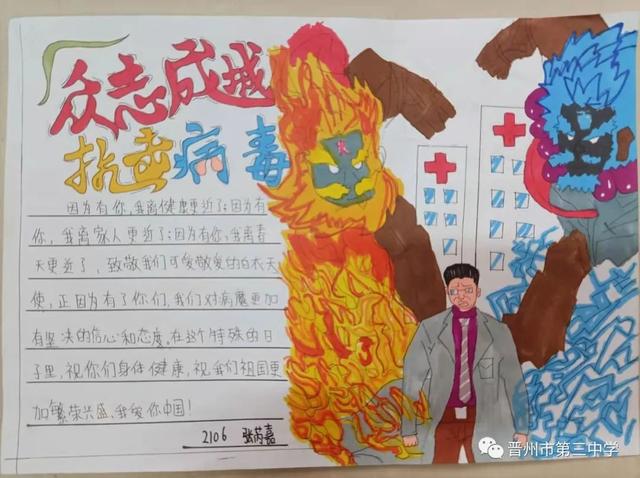 众志成城
抗击病毒
因为有你,我离健康更近了;因为有
你,我离家人更近了;因为有你,我离春
天更近了,致敬我们可爱敬爱的白衣天
使,正因为有了你们,我们对病魔更加
有坚决的信心和态度,在这个特殊的日
子里,祝你们身体健康,祝我们祖国更
加繁荣兴盛,我爱你中国!
2106 张芮嘉
晋州市第三中学